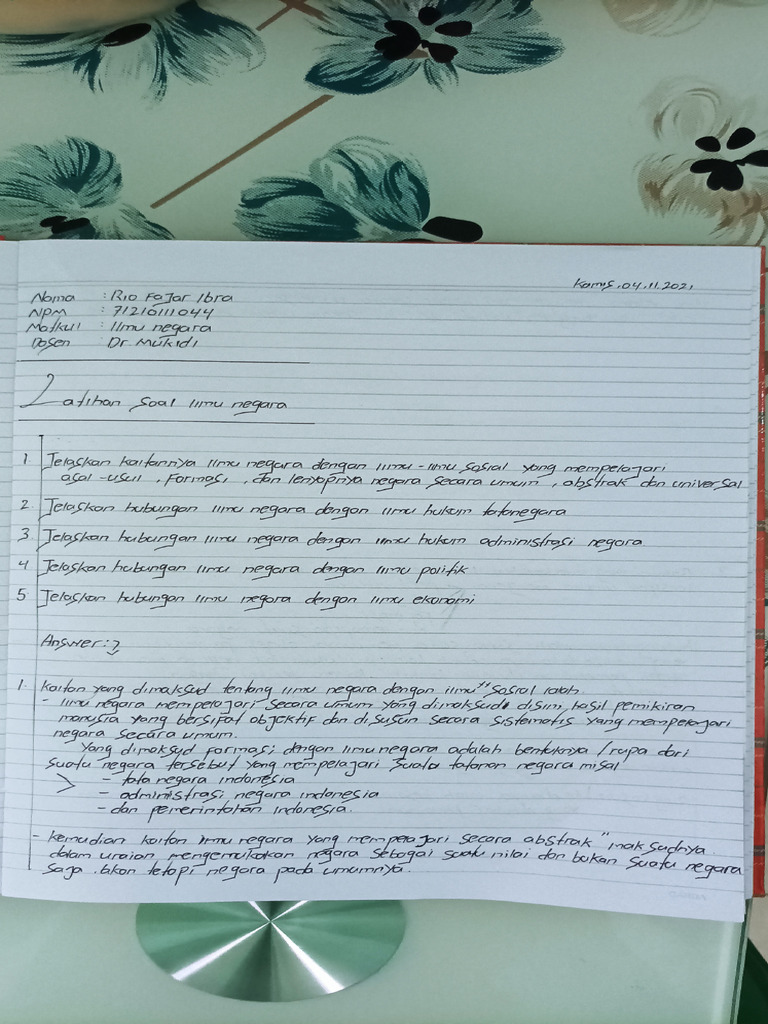 Kamis, 04.11.2021
Nama : Rio Fajar Ibra
NPM : 71210111044
Matkul : Ilmu negara
Dosen : Dr Mukidi
Latihan Soal Ilmu negara
1 Jelaskan kaitannya Ilmu negara dengan ilmu-ilmu sosial yang mempelajari
asal-usul, Formasi, dan lenyapnya negara secara umum, abstrak dan universal
2. Jelaskan hubungan Ilmu negara dengan Ilmu hukum tatanegara
3. Jelaskan hubungan Ilmu negara dengan ilmu hukum administrasi negara
4 Jelaskan hubungan Ilmu negara dengan Ilmu politik
5 Jelaskan hubungan Ilmu negara dengan Ilmu ekonomi
Answer:
1. Kaitan yang dimaksud tentang Ilmu negara dengan ilmu" Sosial ialah
- Ilmu negara mempelajari secara umum yang dimaksud disini, hasil pemikiran
manusia yang bersipat objektif dan disusun secara sistematis yang mempelajari
negara secara umum.
Yang dimaksud formasi dengan ilmu negara adalah bentuknya / rupa dari
suatu negara tersebut yang mempelajari suatu tatanan negara misal
> - tata negara indonesia
- administrasi negara indonesia
- dan pemerintahan indonesia.
- Kemudian kaitan Ilmu negara yang mempelajari secara abstrak "maksudnya
dalam uraian mengemukakan negara sebagai suatu nilai dan bukan suatu negara
saja. akan tetapi negara pada umumnya.